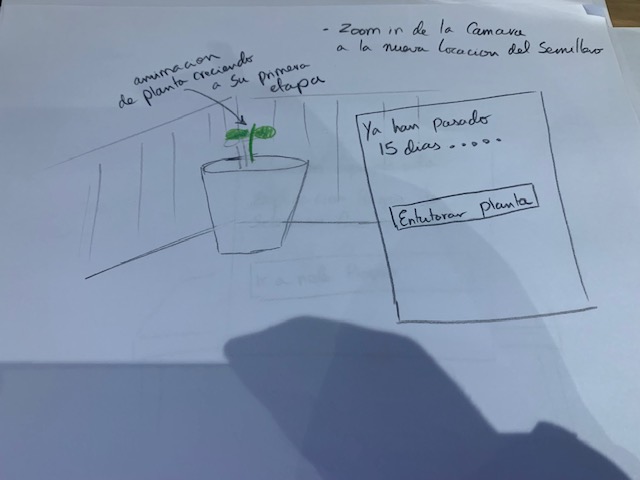 - Zoom in de la Camara
a la nueva locacion del Semillero
animacion
de planta creciendo
a su primera
etapa
Ya han pasado
15 dias .....
Entutorar planta